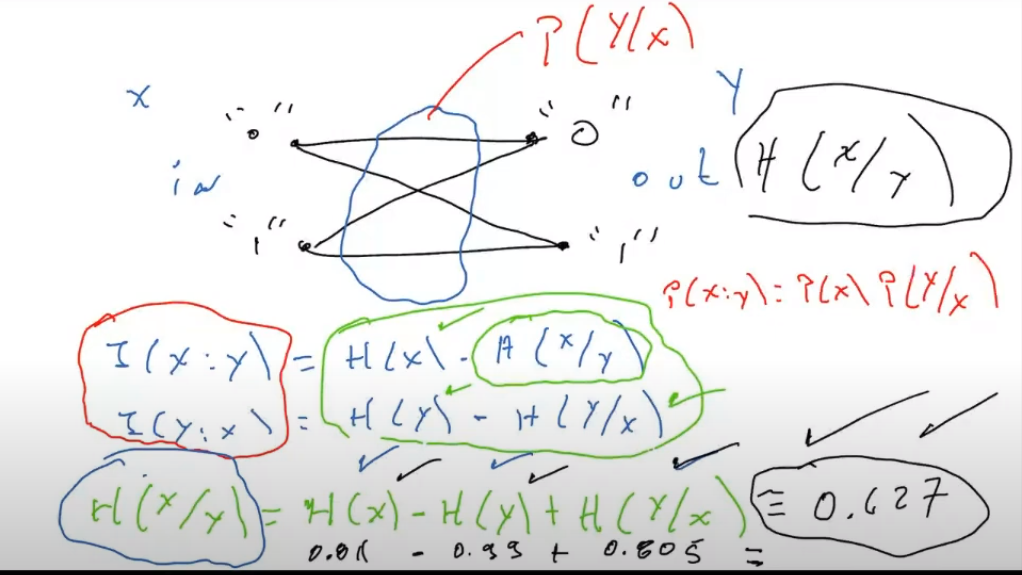 P(Y/x)
x "0" "0" Y
H(x/y)
in out
"1" "1"
P(x:y)=P(x)P(Y/x)
I(x:y) = H(x) - H(x/y)
I(y:x) = H(y) - H(Y/x)
H(x/y) = H(x) - H(y) + H(Y/x) ≡ 0.627
- 0.99 + 0.805 =